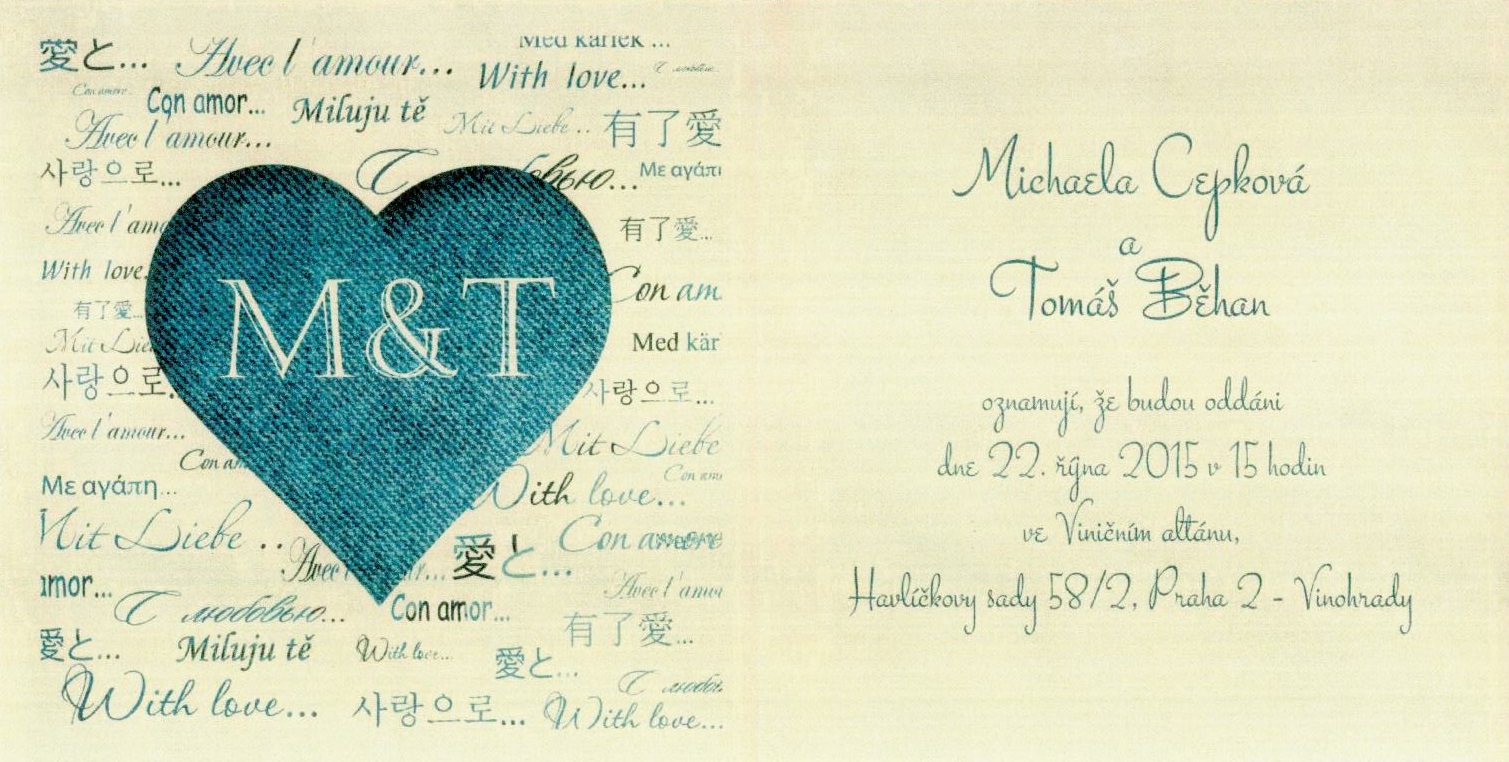 愛と...
Avec l'amour...
Med kärlek ...
With love...
С любовью...
Con amore...
Con amor...
Miluju tě
Avec l'amour...
Mit Liebe ..
有了愛
사랑으로...
С
бвью...
Με αγάπη
Avec l'amo
有了愛...
With love.
Con am
有了愛...
M&T
Mit Lie
Med kär
사랑으로.
사랑으로...
Avec l'amour...
Mit Liebe
Con am
Con am
Με αγάπη...
With love...
Mit Liebe ..
Con amore
Avec l'
ur...
愛と...
amor...
Avec l'amou
С любовью...
Con amor...
有了愛...
愛と...
Miluju tě
With love...
愛と...
С любов
With love...
사랑으로...
With love...
Michaela Cepková
a
Tomáš Běhan
oznamují, že budou oddáni
dne 22. října 2015 v 15 hodin
ve Viničním altánu,
Havlíčkovy sady 58/2, Praha 2 - Vinohrady